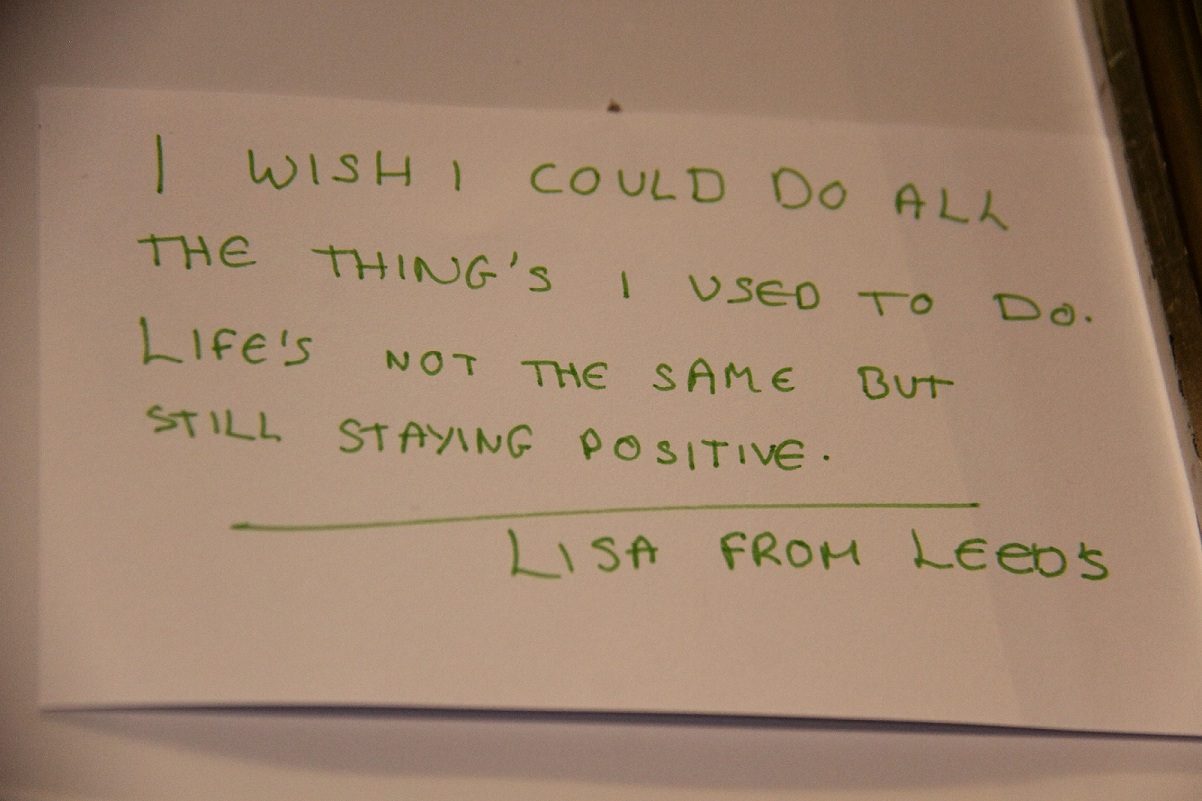 I WISH I COULD DO ALL
THE THING'S I USED TO DO.
LIFE'S NOT THE SAME BUT
STILL STAYING POSITIVE.
LISA FROM LEED'S